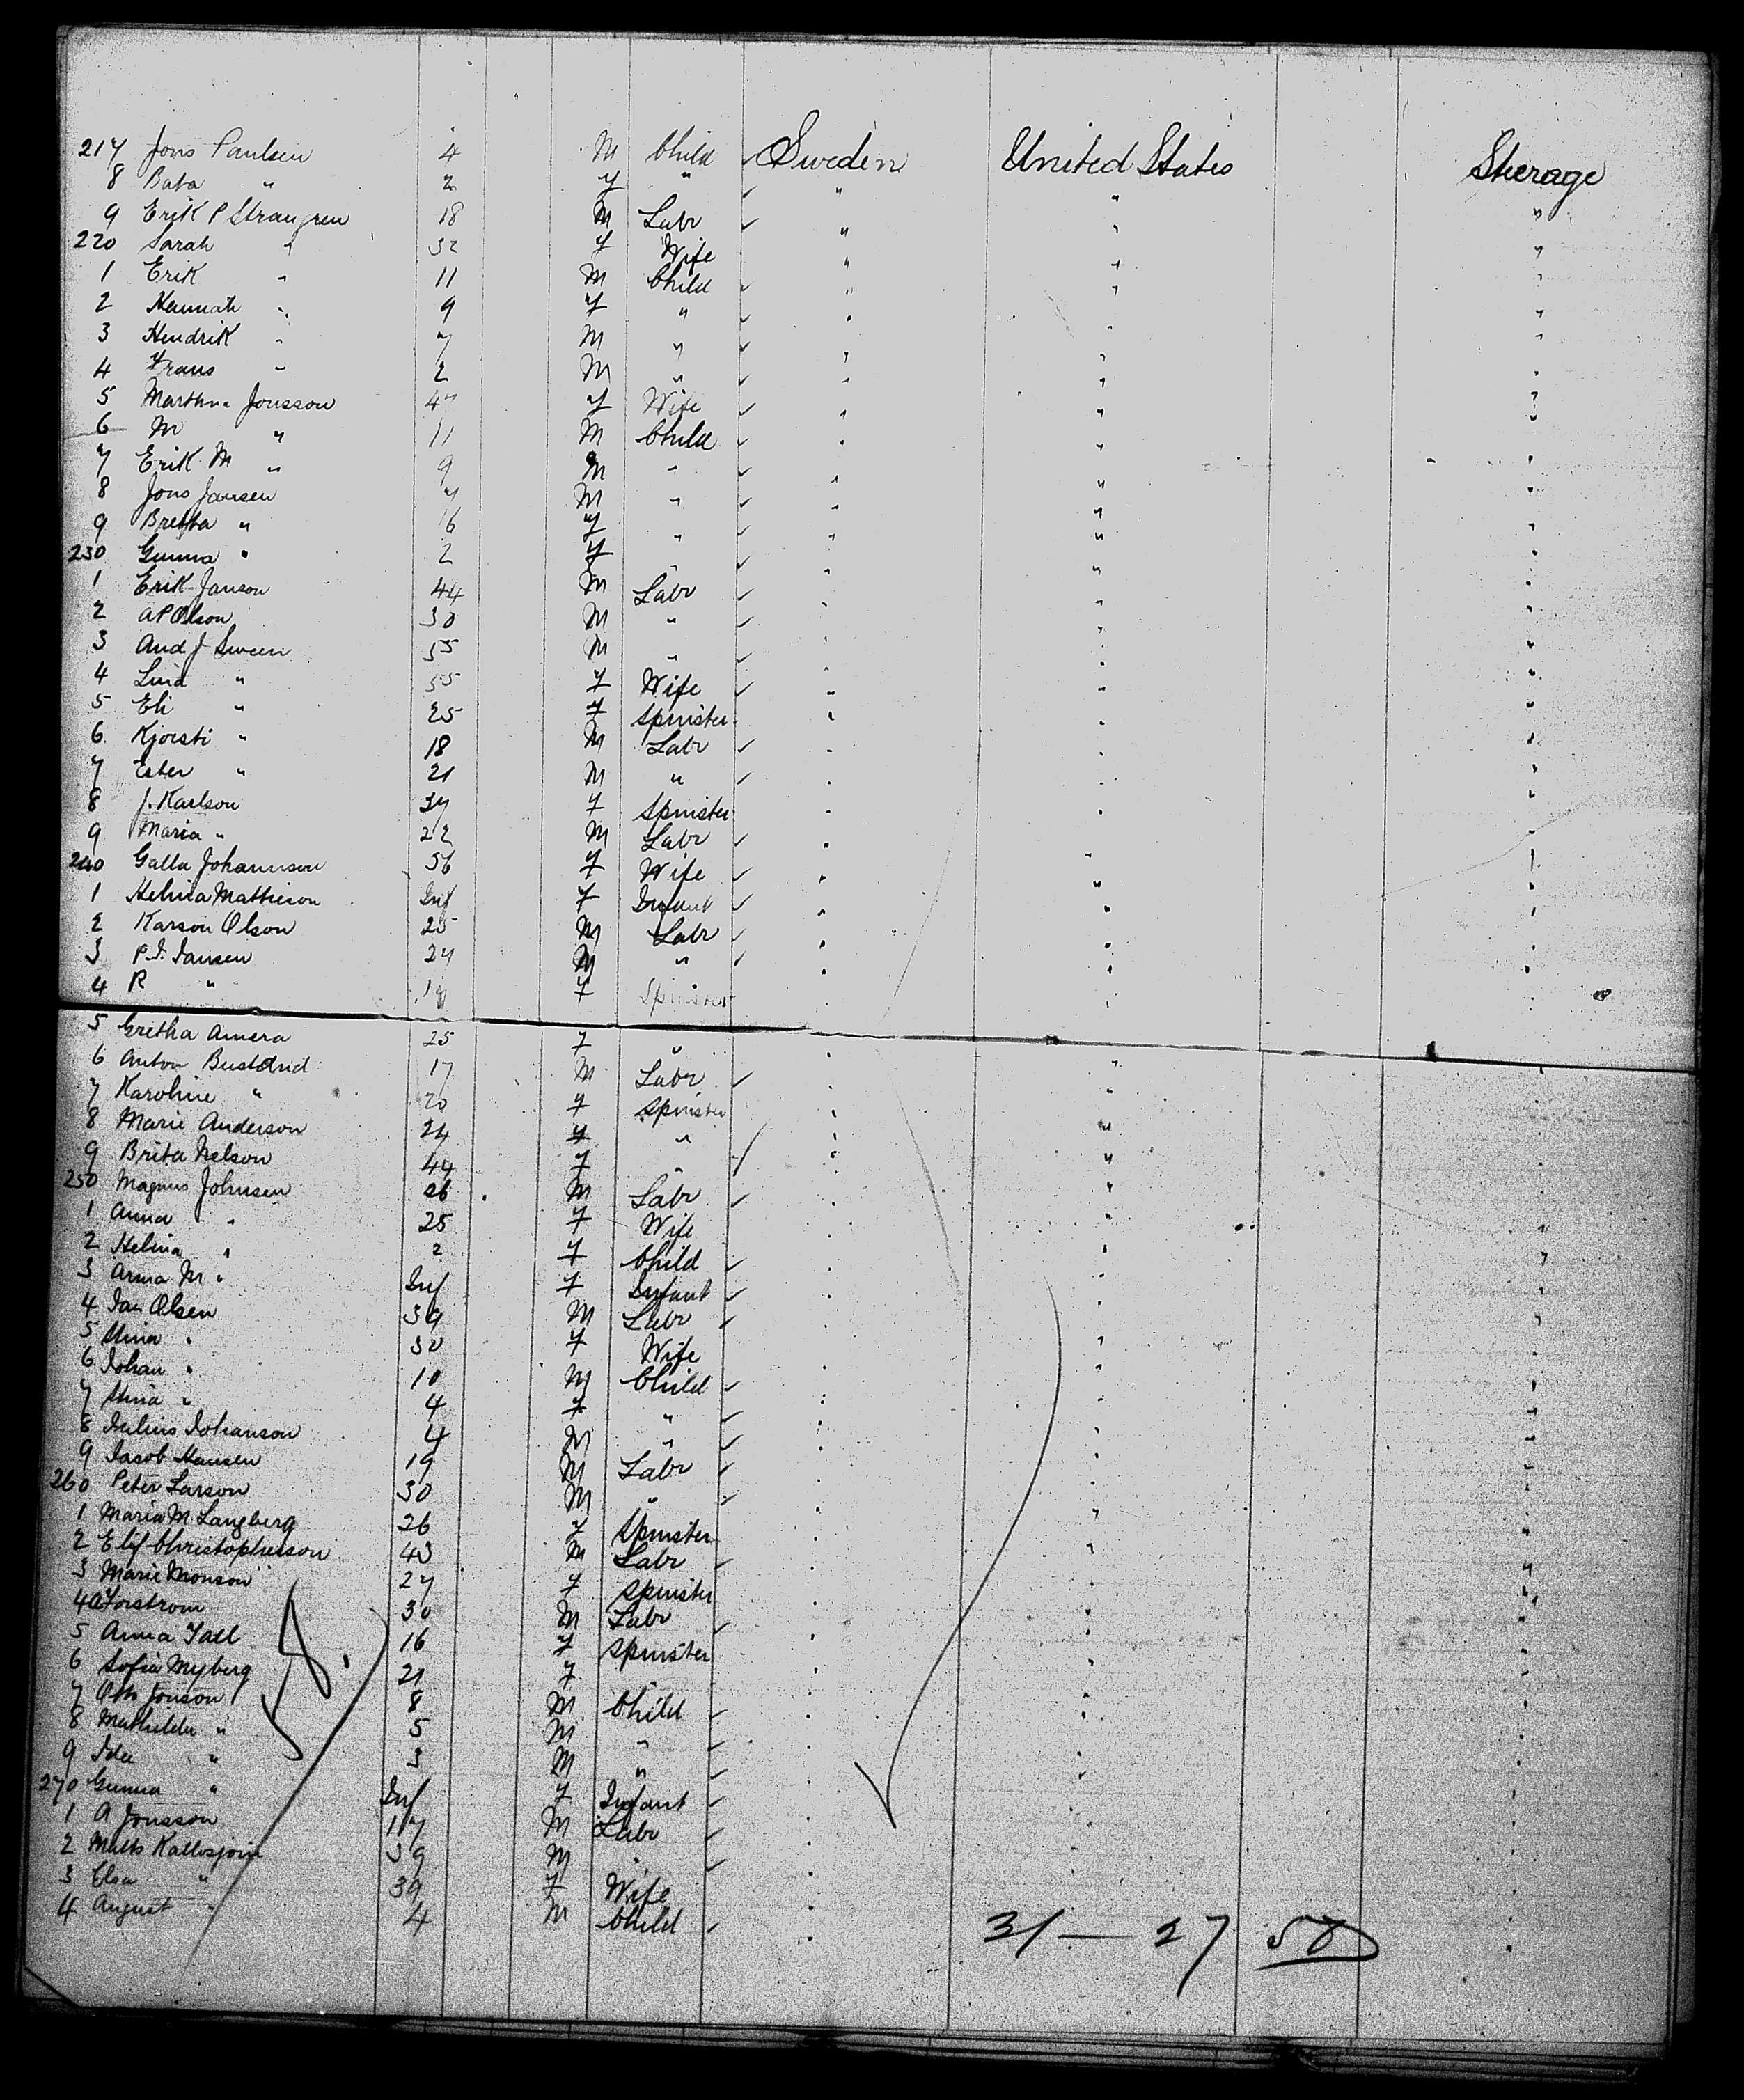 217 Jons Paulsen 4 M Child Sweden United States Sterage
8 Bata " 2 F " " " "
9 Erik P Strangren 18 M Labr " " "
220 Sarah " 32 F Wife " " "
1 Erik " 11 M Child " " "
2 Hannah " 9 F " " " "
3 Hendrik " 7 M " " " "
4 Frans " 2 M " " " "
5 Martha Jonsson 47 F Wife " " "
6 M " 11 M Child " " "
7 Erik M " 9 M " " " "
8 Jons Jansen 7 M " " " "
9 Bretta " 6 F " " " "
230 Gunna " 2 F " " " "
1 Erik Janson 44 M Labr " " "
2 A P Olson 30 M " " " "
3 And J Sween 55 M " " " "
4 Lina " 55 F Wife " " "
5 Eli " 25 F Spinster " " "
6 Kjorsti " 18 M Labr " " "
7 Ester " 21 M " " " "
8 J. Karlson 37 F Spinster " " "
9 Maria " 22 M Labr " " "
240 Galla Johannson 56 F Wife " " "
1 Helina Mattieson Inf F Infant " " "
2 Karson Olson 25 M Labr " " "
3 P. I. Iansen 27 M " " " "
4 R " F Spinster " " "
5 Gretha Amera 25 F " " " "
6 Anton Bustdrid 17 M Labr " " "
7 Karoline " 20 F Spinster " " "
8 Marie Anderson 24 F " " " "
9 Brita Nelson 44 F " " " "
250 Magnus Johnsen 26 M Labr " " "
1 Anna " 25 F Wife " " "
2 Helina " 2 F Child " " "
3 Anna M " Inf F Infant " " "
4 Ian Olsen 39 M Labr " " "
5 Stina " 30 F Wife " " "
6 Iohan " 10 M Child " " "
7 Stina " 4 F " " " "
8 Iulius Iohanson 4 M " " " "
9 Iasob Hansen 19 M Labr " " "
260 Peter Larson 30 M " " " "
1 Maria M Langberg 26 F Spinster " " "
2 Elif Christopherson 43 M Labr " " "
3 Marie Monson 27 F Spinster " " "
4 A Forstrom 30 M Labr " " "
5 Anna Fall 16 F Spinster " " "
6 Sofia Myberg 21 F " " " "
7 Otto Jonson 8 M Child " " "
8 Mathilda " 5 M " " " "
9 Ida " 3 M " " " "
270 Gunna " Inf F Infant " " "
1 A Jonsson 17 M Labr " " "
2 Matts Kallosjoin 39 M " " " "
3 Elsa " 39 F Wife " " "
4 August " 4 M Child " " "
31 — 27 58